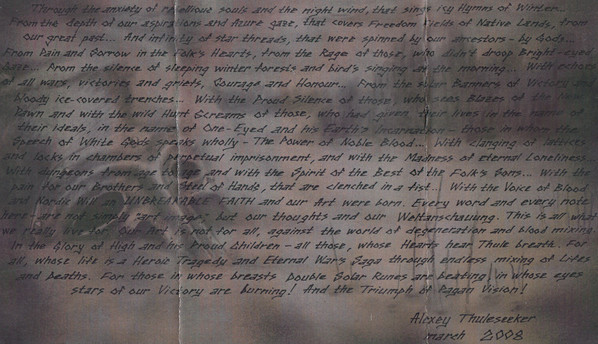 Through the anxiety of rebellious souls and the night wind, that sings icy Hymns of Winter...
From the depth of our aspirations and Azure gaze, that covers Freedom Fields of Native Lands, from
our great past... And infinity of star threads, that were spinned by our ancestors - by Gods...
From Pain and Sorrow in the Folk's Hearts, from the Rage of those, who didn't droop Bright-eyed
Gaze. From the silence of sleeping winter forests and bird's singing in the morning... With echoes
of all wars, victories and griefs, Courage and Honour... From the Solar Banners of Victory and
bloody ice-covered trenches... With the Proud Silence of those, who sees of the
Dawn and with the wild Hunt Screams of those, who had given their lives in the name of
their ideals, in the name of One-Eyed and his Earth's Incarnation - those in whom the
Speech of White Gods speaks wholly - The Power of Noble Blood... With clanging of lattices
and locks in chambers of perpetual imprisonment, and with the Madness of eternal Loneliness...
With dungeons from age age and with the Spirit of the Best of the Folk's Sons... With the
pain for our Brothers and Steel of Hands, that are clenched in a fist... With the Voice of Blood
and Nordic Will an UNBREAKABLE FAITH and our Art were born. Every word and every note
here - are not simply "art-image", but our thoughts and our Weltanschauung. This is all what
we really live for. Our Art is not for all, against the world of degeneration and blood mixing.
In the Glory of High and his Proud Children - all those, whose Hearts hear Thule breath. For
all, whose life is a Heroic Tragedy and Eternal War's Saga through endless mixing of Lifes
and Deaths. For those in whose breasts Double Solar Runes are beating, in whose eyes
stars of our Victory are burning! And the Triumph of Pagan Vision!
Alexey Thuleseeker
march 2008